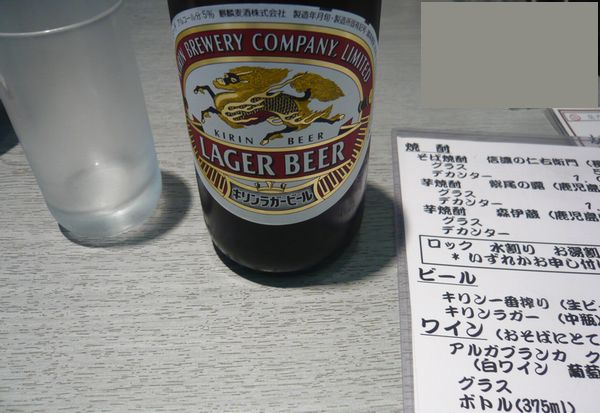 アルコール分5% 麒麟麦酒株式会社
KIRIN BREWERY COMPANY, LIMITED
KIRIN BEER
LAGER BEER
キリンラガービール
焼 酎
そば焼酎 信濃の仁右衛門
グラス
デカンター
芋焼酎 (鹿児島
グラス
デカンター
芋焼酎 森伊蔵 (鹿児島
グラス
デカンター
ロック 水割り お湯割
*いずれかお申し付け
ビール
キリン一番搾り (生ビ
キリンラガー (中瓶)
ワイン (おそばにとて
アルガブランカ ク
(白ワイン 葡萄
グラス
ボトル(375ml)